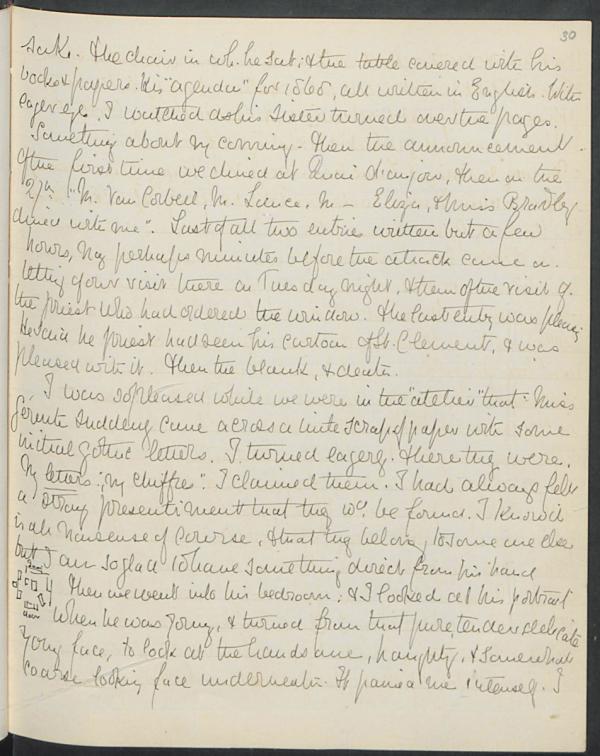 30
sat. The chair in wh. he sat; & the table covered with his
books & papers. His "agenda" for 1868, all written in English. With
eager eye, I watched as his sister turned over the pages.
Something about my coming - Then the announcement
of the first time we dined at Quai d'anjou, then on the
27th "M. Van M. Luice, M. - Eliza, & Miss Bradley
dined with me". Last of all two entries written but a few
hours, nay perhaps minutes before the attack came on.
telling of our visit there on Tuesday night, & then of the visit of
the priest who had ordered the window. The last entry was pleasing
He said the priest had seen his cartoon of St. Clement, & was
pleased with it. Then the blank, & death.
I was so pleased while we were in the "atelier" that Miss
Gerente suddenly came across a little scrap of paper with some
initial gothic letters. I turned eagerly. & there they were.
My letters: "my chiffre". I claimed them. I had always felt
a strong presentiment that they wd. be found. I know it
is all nonsense of course, & that they belong to some one else
but I am so glad to have something direct from his hand
Then we went into his bedroom; & I looked at his portrait
when he was young, & turned from that pure, tender delicate
young face, to look at the handsome, haughty, & somewhat
coarse looking face underneath. It pained me intensely. I